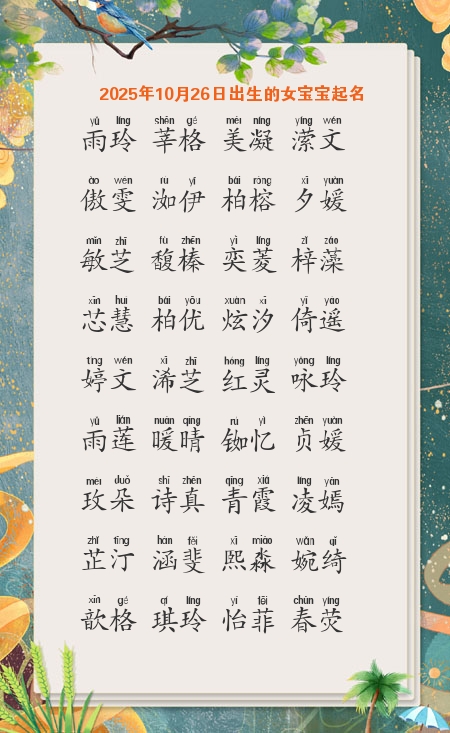 2025年10月26日出生的女宝宝起名
yǔ líng shēn gé měi níng yíng wén
雨玲 莘格 美凝 潆文
ào wén rù yī bǎi róng xī yuàn
傲雯 洳伊 柏榕 夕媛
mǐn zhī fù zhēn yì líng zǐ zǎo
敏芝 馥榛 奕菱 梓藻
xīn huì bǎi yōu xuàn xī yǐ yáo
芯慧 柏优 炫汐 倚遥
tíng wén xī zhī hóng líng yǒng líng
婷文 浠芝 红灵 咏玲
yǔ lián nuǎn qíng rú yì zhēn yuàn
雨莲 暖晴 铷忆 贞媛
méi duǒ shī zhēn qīng xiá líng yān
玫朵 诗真 青霞 凌嫣
zhǐ tīng hán fěi xī miǎo wǎn qǐ
芷汀 涵斐 熙淼 婉绮
xīn gé qí líng yí fēi chūn yíng
歆格 琪玲 怡菲 春荧